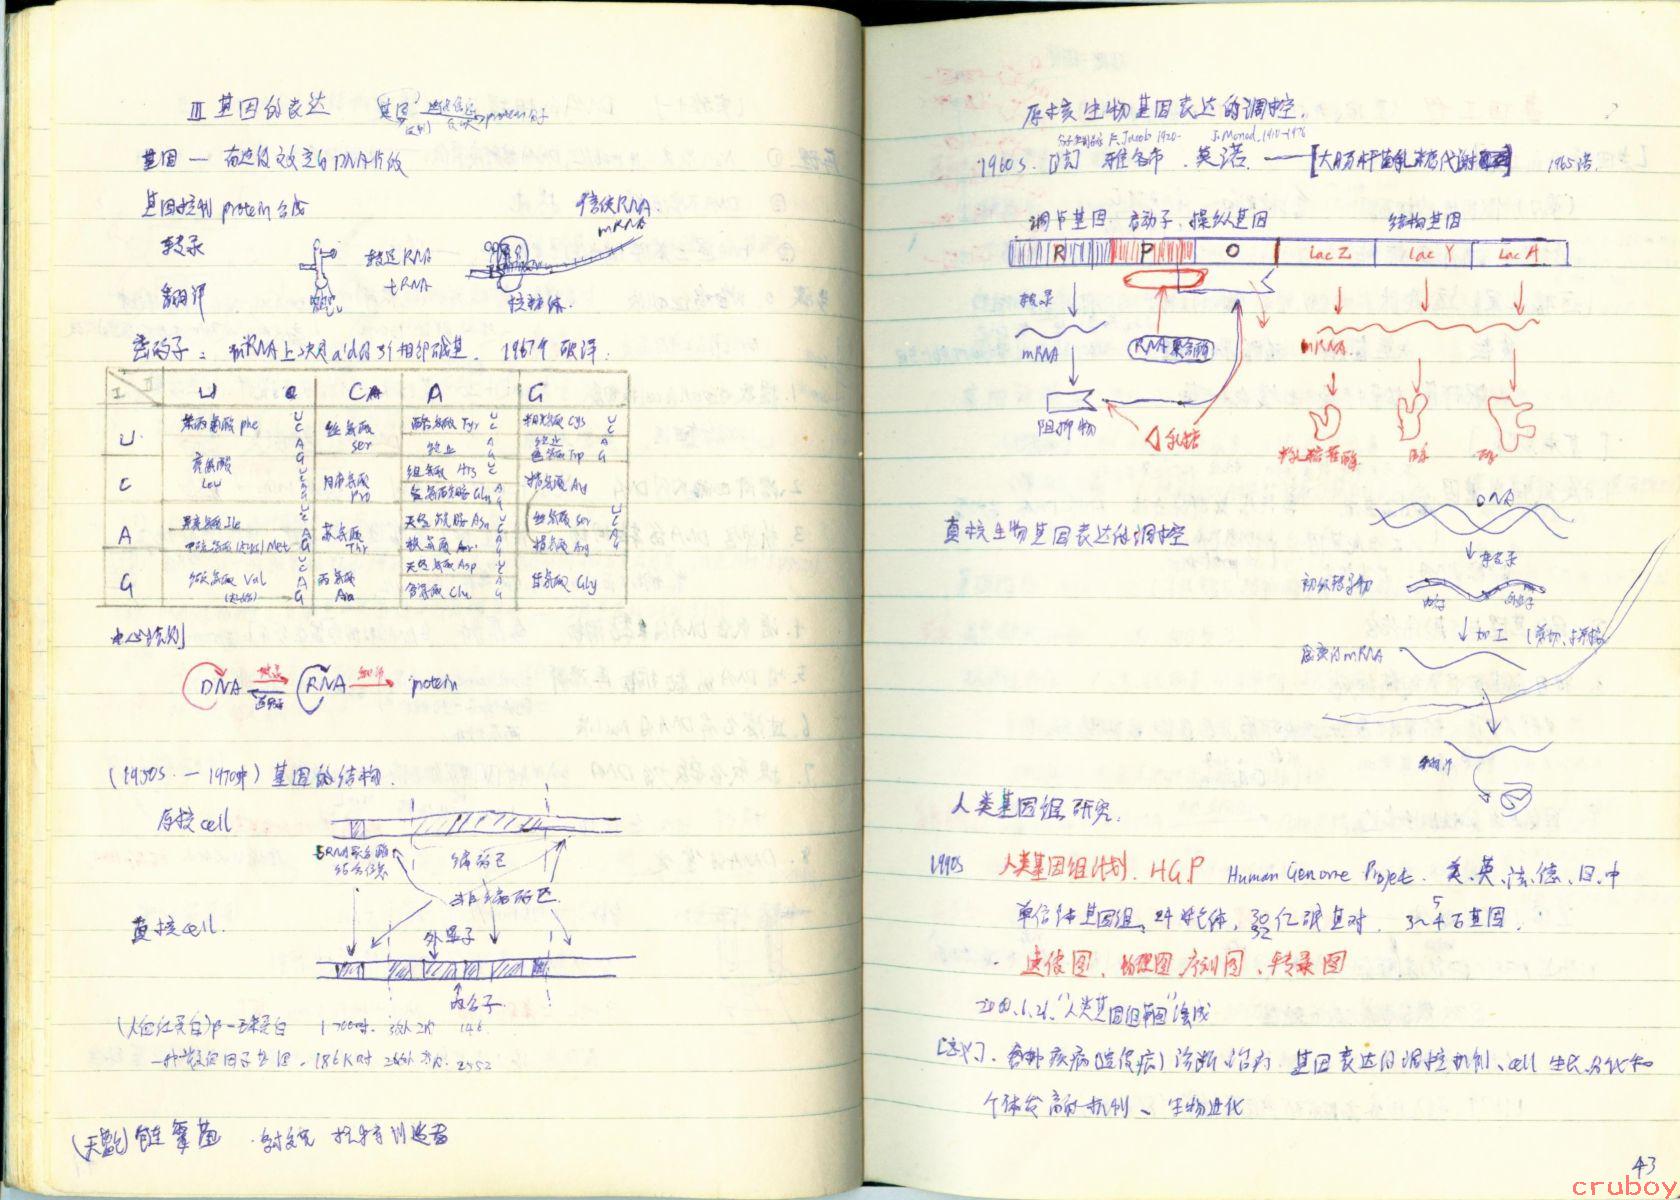 III 基因的表达
基因 — 有遗传效应的DNA片段
基因控制 protein 合成
信使RNA.
mRNA
转录
转运RNA
tRNA
翻译
核糖体.
密码子: mRNA上决定a'a的3个相邻碱基. 1967年 破译.
I II U C CA A G
苯丙氨酸 phe U C
丝氨酸 Ser
酪氨酸 Tyr U C
半胱氨酸 Cys U C
U
终止 A G
终止 A
色氨酸 Trp G
亮氨酸 Leu
C
脯氨酸 Pro
组氨酸 His U C
谷氨酰胺 Gln A G
精氨酸 Arg
A
异亮氨酸 Ile
Met G
苏氨酸 Thr
天冬酰胺 Asn U C
丝氨酸 Ser U C
精氨酸 Arg A G
G
缬氨酸 Val
丙氨酸
天冬氨酸 Asp U C
谷氨酸 Glu A G
甘氨酸 Gly
中心法则
DNA 转录 RNA 翻译 protein
逆转录
(1950s. — 1970年) 基因的结构.
原核 cell
RNA聚合酶
结合位点
编码区
非编码区.
真核 cell.
外显子
内含子
(人血红蛋白)β-珠蛋白 1700对. 3外 2内 146
186K对 26外 2552
链霉菌
原核生物基因表达的调控.
F. Jacob 1920- J. Monod. 1910-1976
1960s. [法] 雅各布. 莫诺. —— [大肠杆菌乳糖代谢 1965诺.
调节基因 启动子, 操纵基因 结构基因
R P O Lac Z Lac Y Lac A
转录
mRNA
RNA聚合酶
mRNA.
阻抑物
乳糖
半乳糖苷酶 酶 酶
真核生物基因表达的调控
DNA
转录
初级转录物
内含子 外显子
加工 (剪切、拼接
成熟的mRNA
翻译
人类基因组研究.
1990s 人类基因组计划. HGP Human Genome Project. 美、英、法、德、日、中
单倍体基因组, 24 染色体, 30 亿碱基对. 3~4 万基因.
32 5
遗传图、物理图、序列图、转录图
2000.6.26. "人类基因组草图"绘成
[意义]. 各种疾病(遗传病)诊断、治疗. 基因表达的调控机制、cell 生长、分化和
个体发育的机制、生物进化
43
cruboy